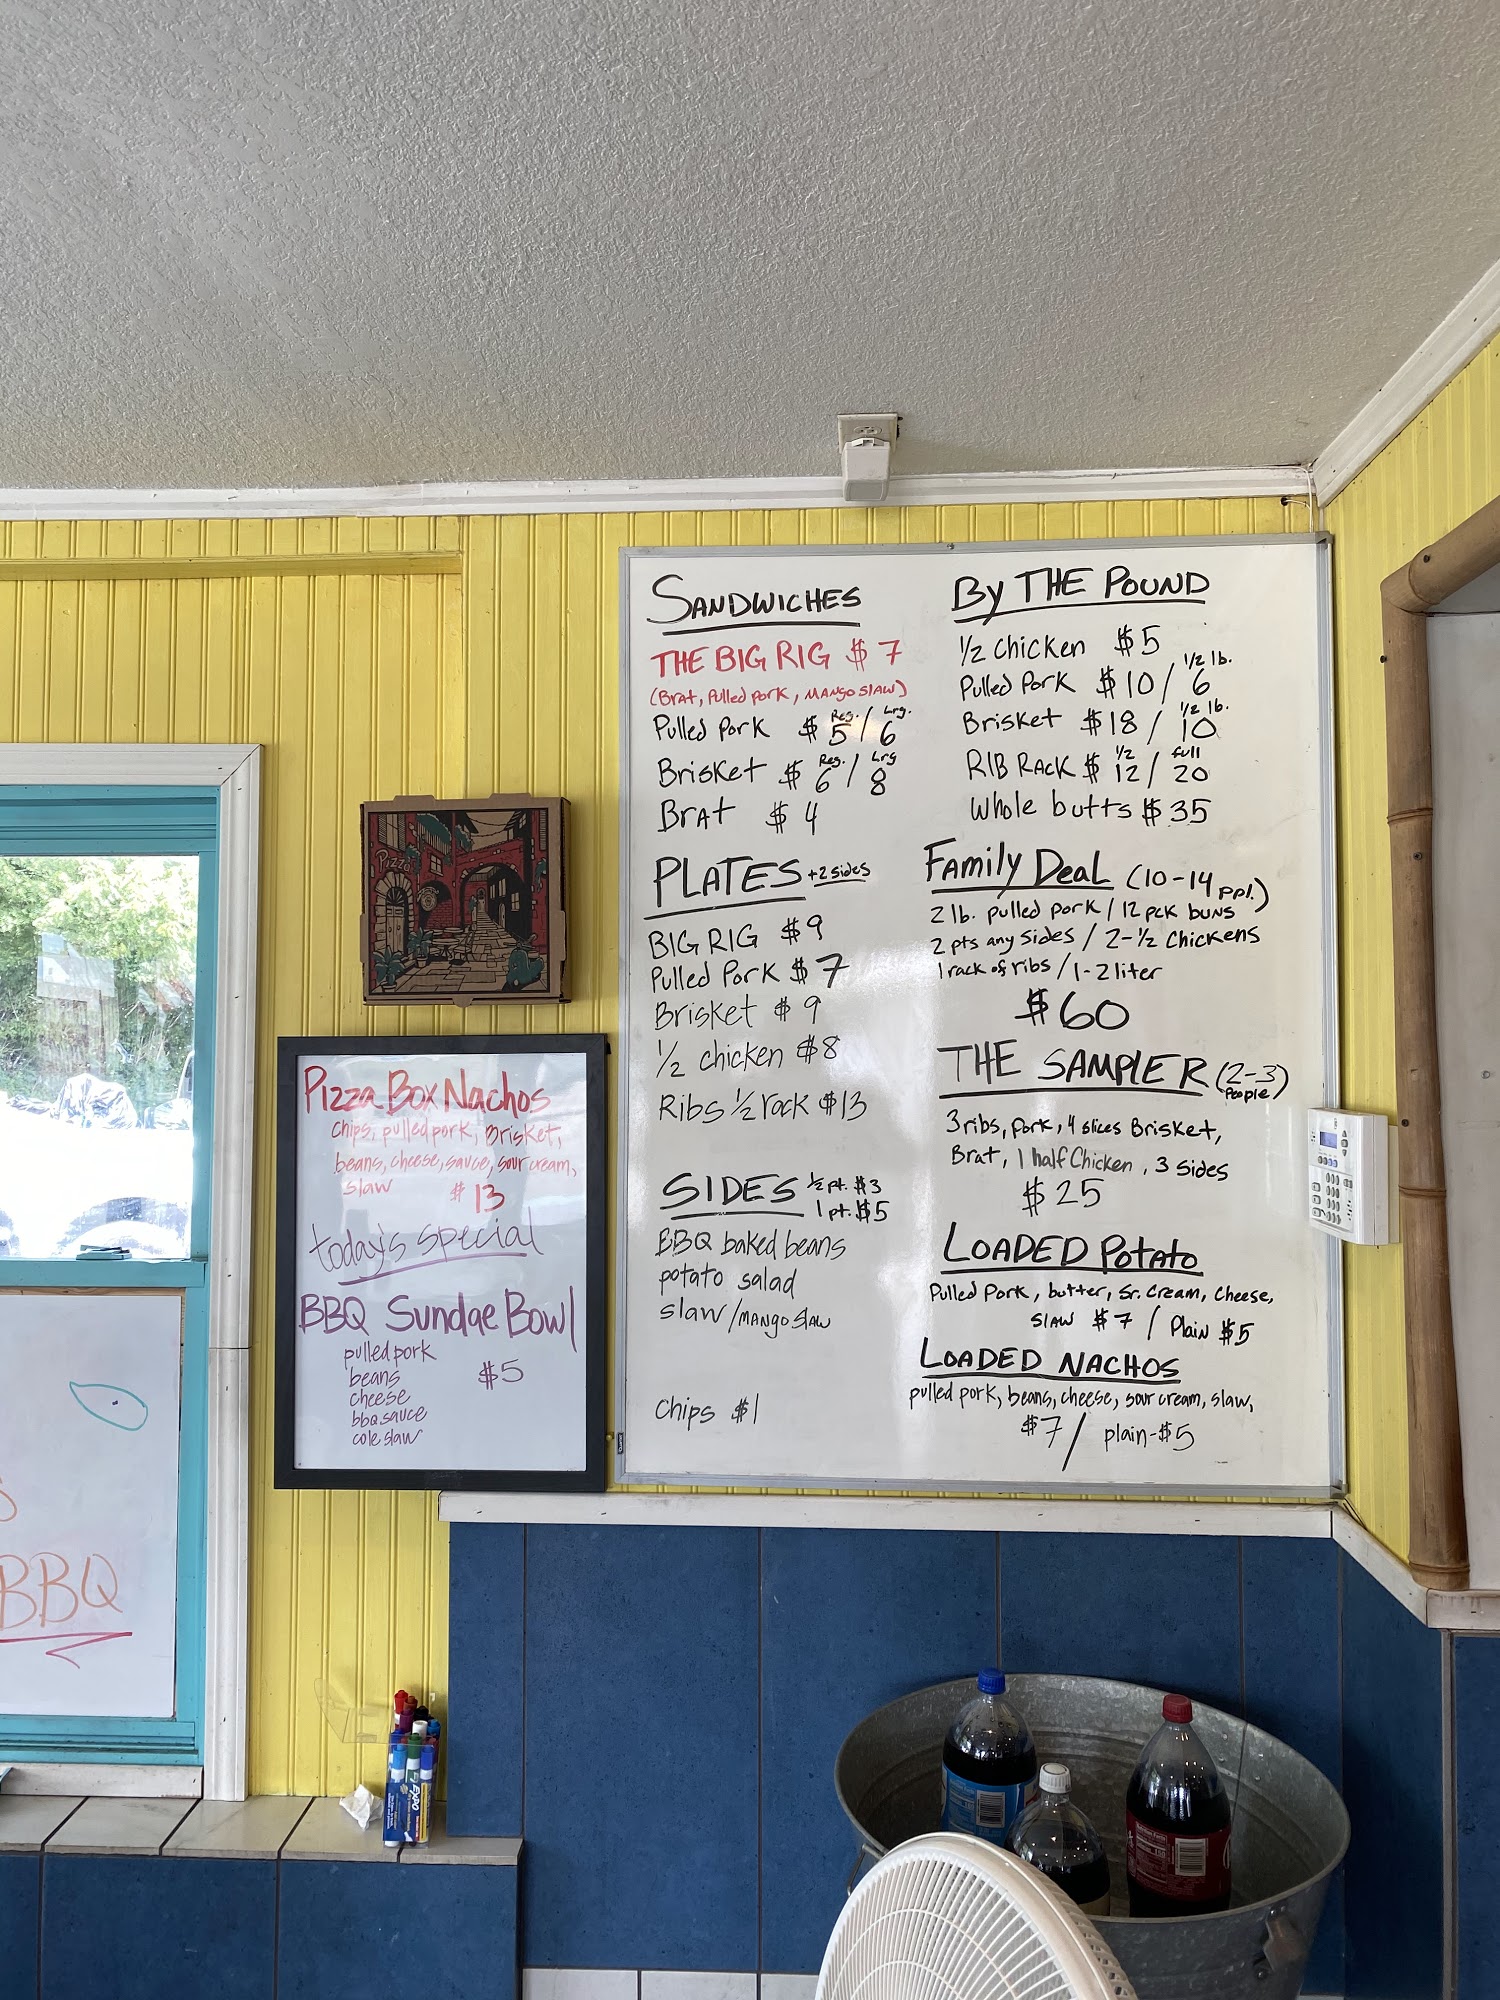 SANDWICHES
THE BIG RIG $7
(Brat, Pulled Pork, MANGO SLAW)
Reg. Lrg.
Pulled Pork $5/6
Reg. Lrg
Brisket $6/8
Brat $4
PLATES +2 sides
BIG RIG $9
Pulled Pork $7
Brisket $9
1/2 chicken $8
Ribs 1/2 rack $13
SIDES 1/2 pt. $3
1 pt. $5
BBQ baked beans
potato salad
slaw/MANGO SLAW
Chips $1
By THE POUND
1/2 Chicken $5
1/2 lb.
Pulled Pork $10/6
1/2 lb.
Brisket $18/10
1/2 full
RIB RACK $12/20
Whole butts $35
Family Deal (10-14 ppl.)
2 lb. pulled pork / 12 pck buns
2 pts any sides / 2-1/2 Chickens
1 rack of ribs / 1-2 liter
$60
THE SAMPLER (2-3)
People
3 ribs, pork, 4 slices Brisket,
Brat, 1 half Chicken, 3 sides
$25
LOADED Potato
Pulled Pork, butter, Sr. Cream, Cheese,
SLAW $7 / Plain $5
LOADED NACHOS
pulled pork, beans, cheese, sour cream, slaw,
$7/ plain-$5
Pizza
Pizza Box Nachos
chips, pulled pork, Brisket,
beans, cheese, sauce, sour cream,
slaw $13
today's special
BBQ Sundae Bowl
pulled pork
beans $5
cheese
bbq sauce
cole slaw
BBQ
EXPO